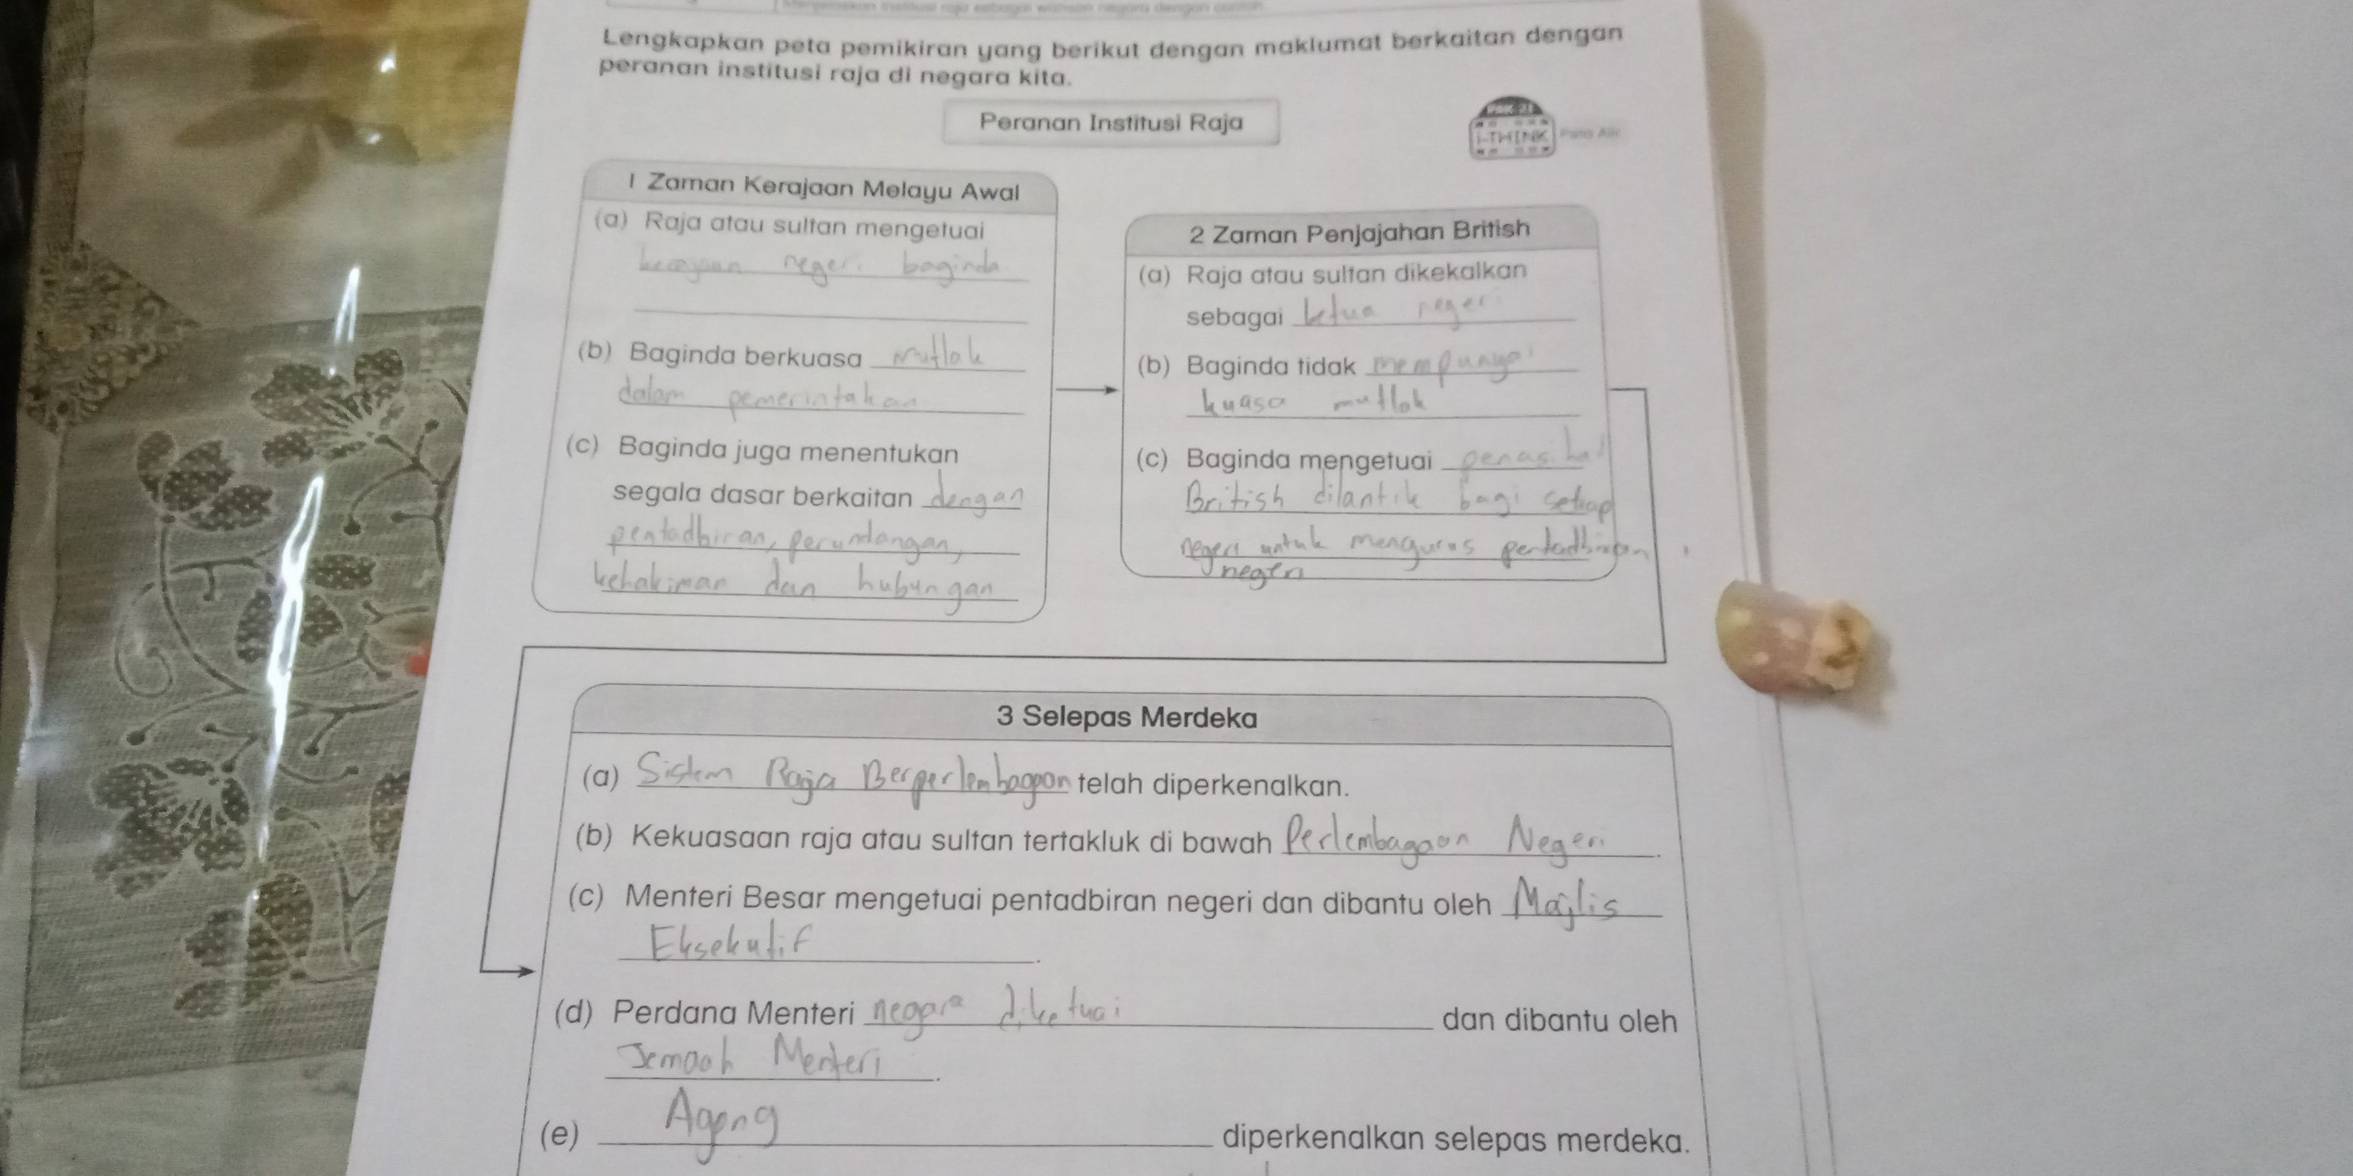 Lengkapkan peta pemikiran yang berikut dengan maklumat berkaitan dengan
peranan institusi raja di negara kita.
Peranan Institusi Raja
PAK 21
i-THINK
1 Zaman Kerajaan Melayu Awal
(a) Raja atau sultan mengetuai
kerajaan negeri baginda
(b) Baginda berkuasa mutlak
dalam pemerintahan
(c) Baginda juga menentukan
segala dasar berkaitan dengan
pentadbiran, perundangan,
kehakiman dan hubungan
2 Zaman Penjajahan British
(a) Raja atau sultan dikekalkan
sebagai ketua negeri
(b) Baginda tidak mempunyai
kuasa mutlak
(c) Baginda mengetuai penasihat
British dilantik bagi setiap
negeri untuk mengurus pentadbiran
negeri
3 Selepas Merdeka
(a) Sistem Raja Berperlembagaan telah diperkenalkan.
(b) Kekuasaan raja atau sultan tertakluk di bawah Perlembagaan Negeri.
(c) Menteri Besar mengetuai pentadbiran negeri dan dibantu oleh Majlis
Eksekutif.
(d) Perdana Menteri negara diketuai dan dibantu oleh
Jemaah Menteri.
(e) Agong diperkenalkan selepas merdeka.